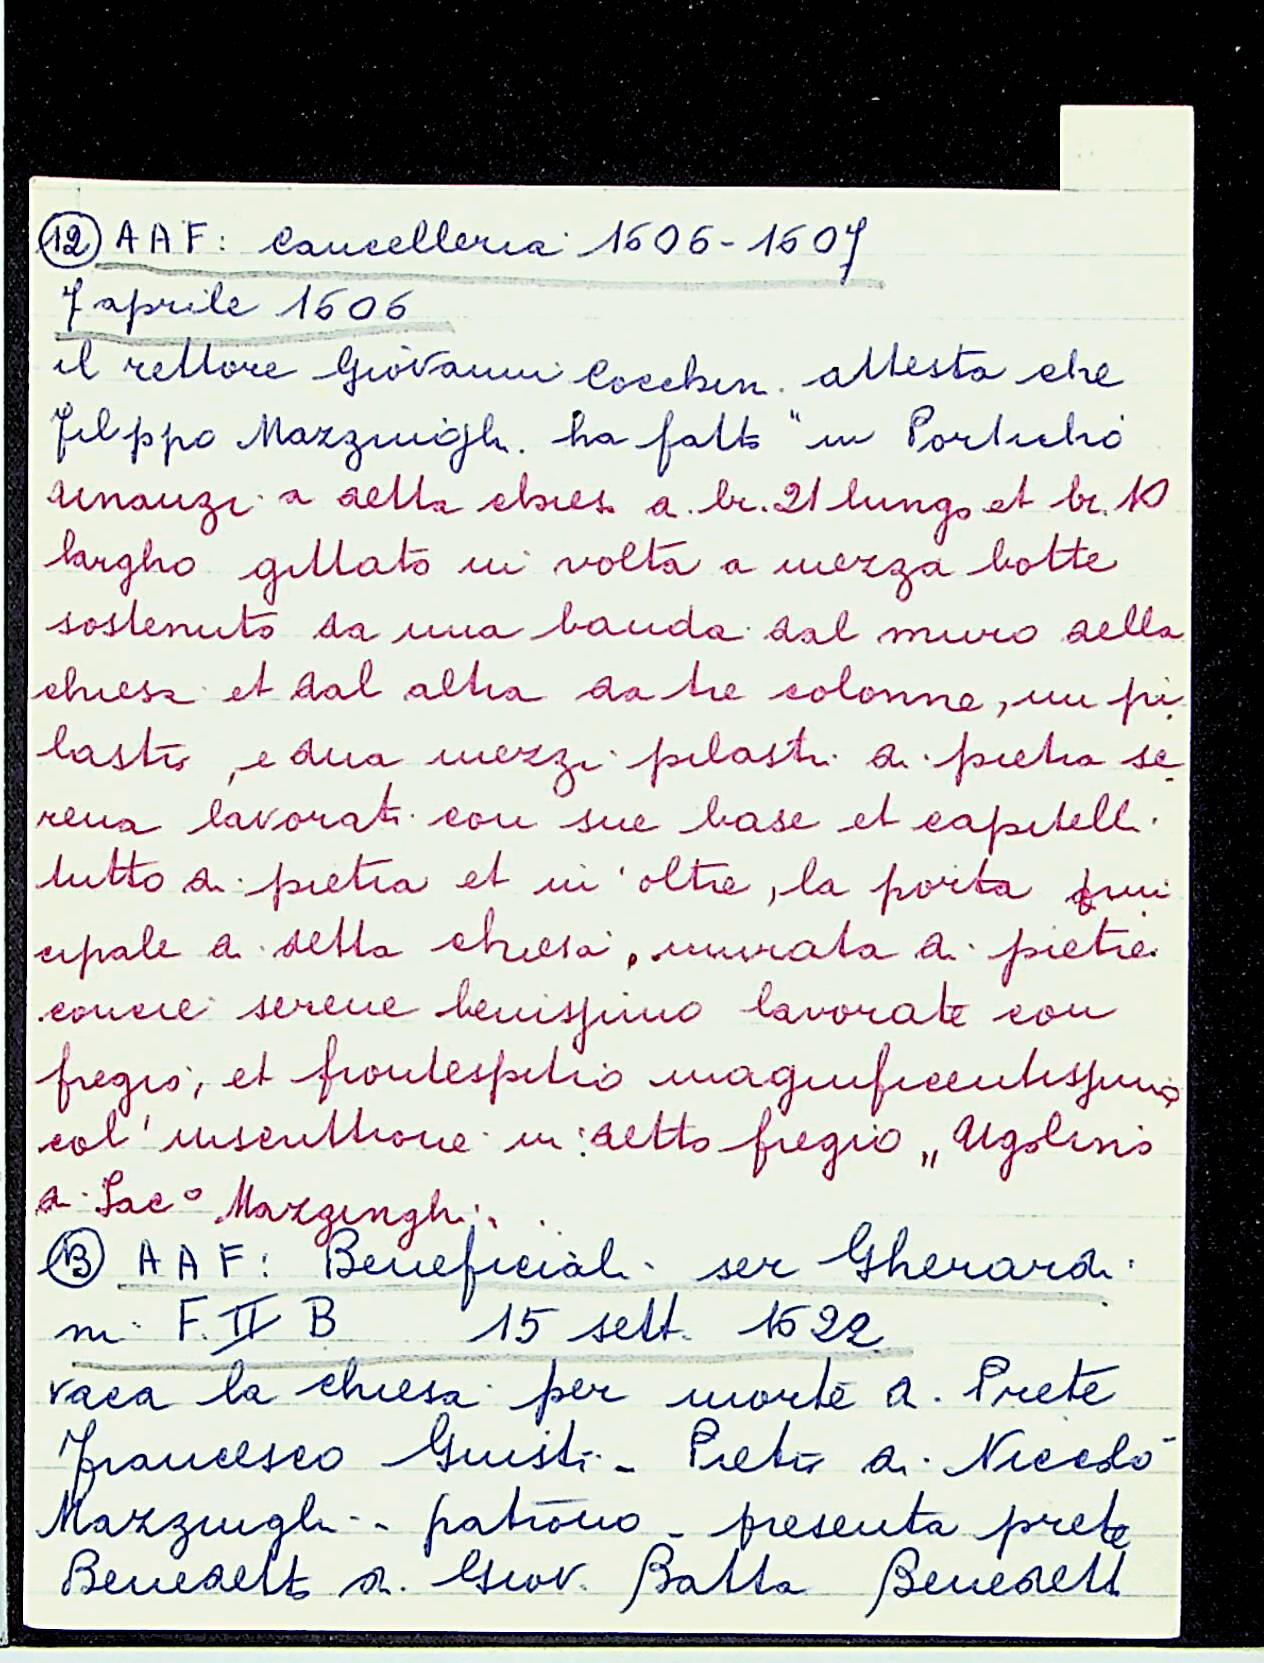 12 AAF: Cancelleria 1606-1607
7 aprile 1606
il rettore Giovanni Cocchini attesta che
Filippo Mazzinighi ha fatto "un Portichό
dinanzi a detta chiesa di br. 21 lungo et br. 10
largho gittato in volta a mezza botte
sostenuto da una banda dal muro della
chiesa et dal altra da tre colonne, un pi
lastro, e dua mezzi pilastri di pietra se
rena lavorati con sue base et capitelli
tutto di pietra et in oltre, la porta prin
cipale di detta chiesa, murata di pietre
concie serene benissimo lavorate con
fregio, et frontespitio magnificentissimo
col' inscrittione in detto fregio „ Ugolino
di Jac° Mazzinghi.
13 AAF: Beneficiali ser Gherardi
in F. II B 15 sett. 1622
vaca la chiesa per morte di Prete
Francesco Giusti - Pietro di Niccolò
Mazzinghi - patrono - presenta prete
Benedetto di Giov. Batta Benedetti